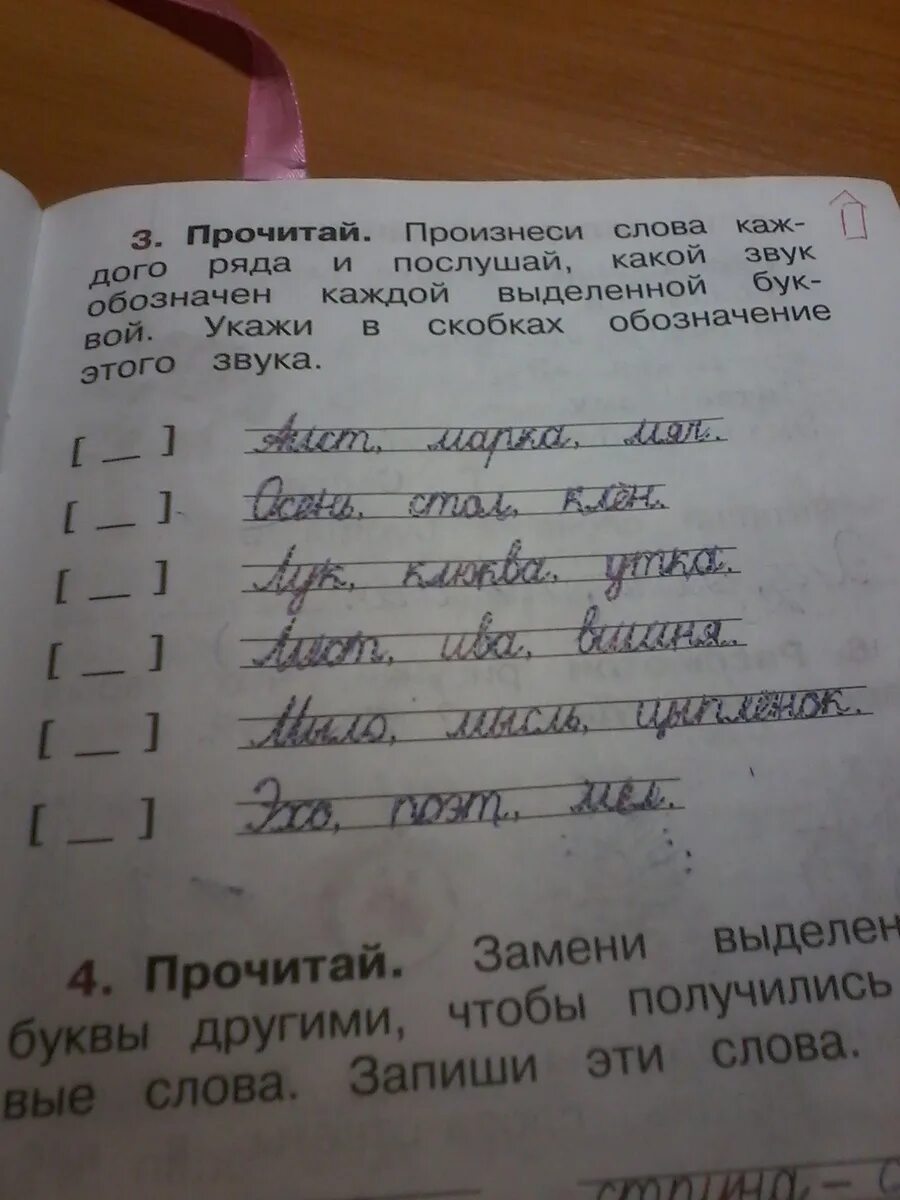 3. Прочитай. Произнеси слова каж-
дого ряда и послушай, какой звук
обозначен каждой выделенной бук-
вой. Укажи в скобках обозначение
этого звука.
[ _ ] Аист, марка, мяч.
[ _ ] Осень, стол, клён.
[ _ ] Лук, клюква, утка.
[ _ ] Лист, ива, вишня.
[ _ ] Мыло, мысль, цыплёнок.
[ _ ] Эхо, поэт, мел.
4. Прочитай. Замени выделен
буквы другими, чтобы получились
вые слова. Запиши эти слова.